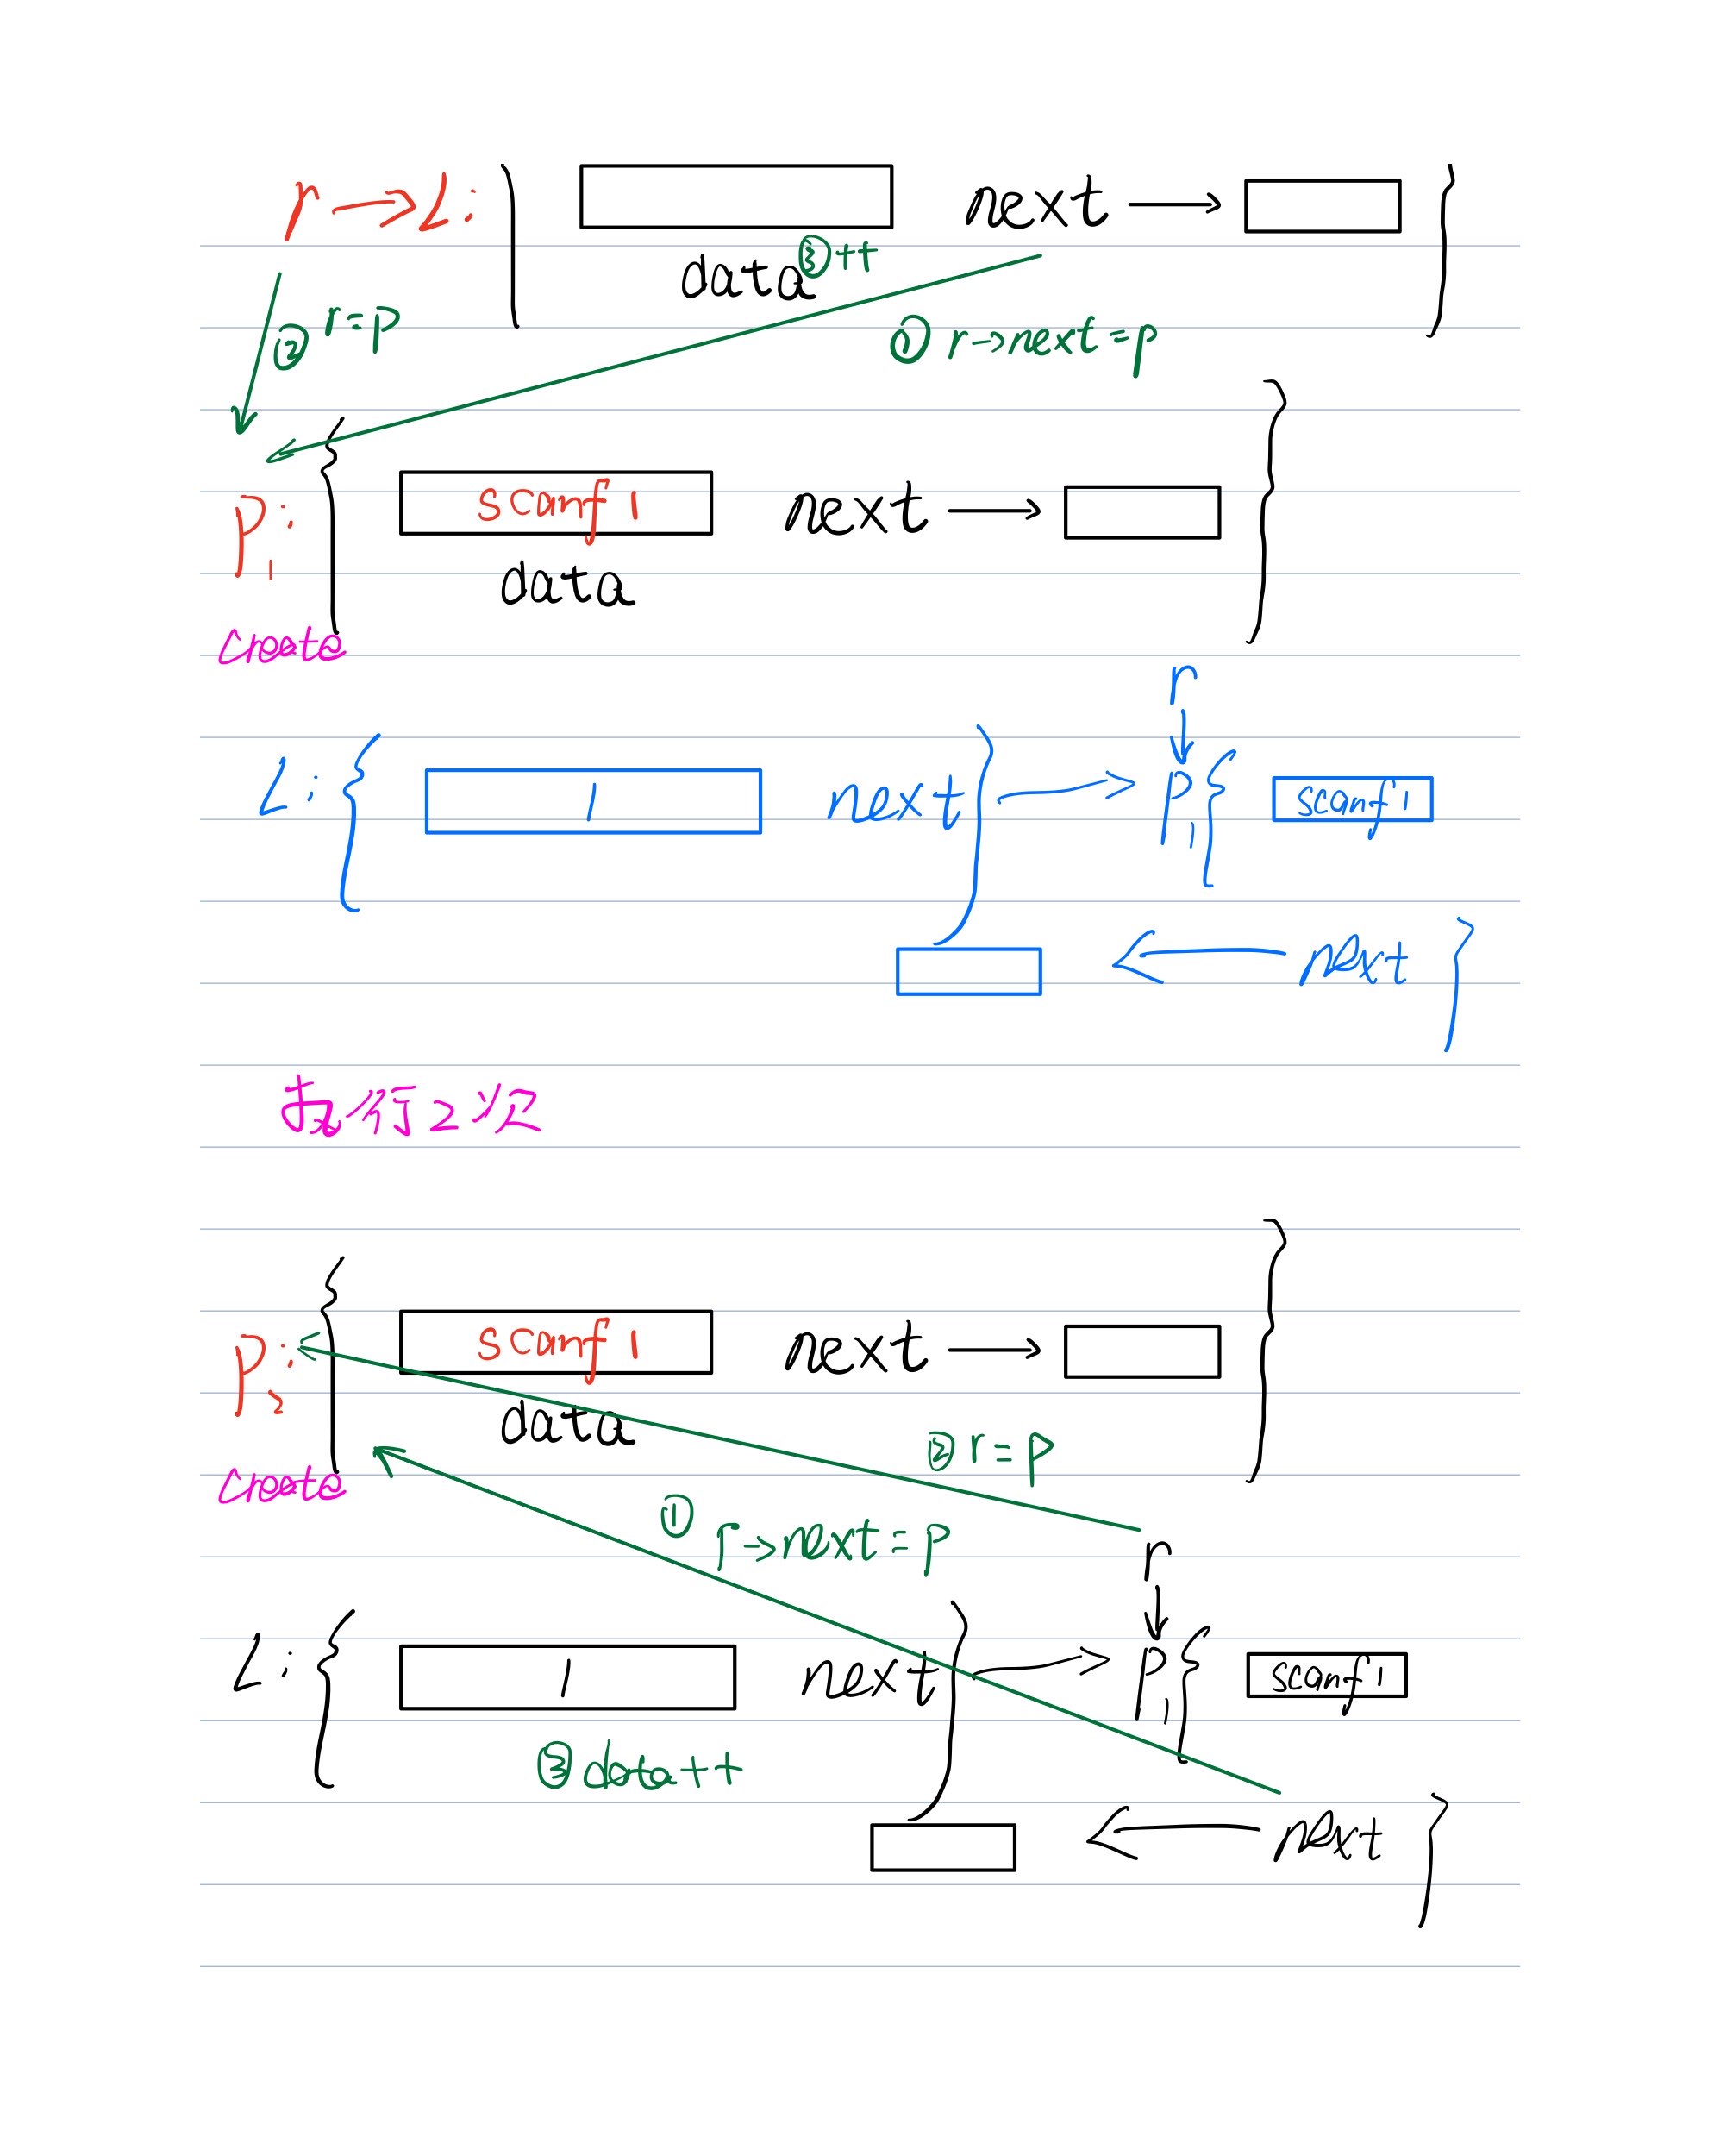 r→L: next →
data ③++
② r=p ① r→next=p
P1: scanf 1 next →
data
create
r
L: { 1 next } → P1 { scanf 1
← next }
执行2次
P2: scanf 1 next →
data
② r=p
create
① r→next=p
r
L: { 1 next } → P1 { scanf 1
③ data++
← next }